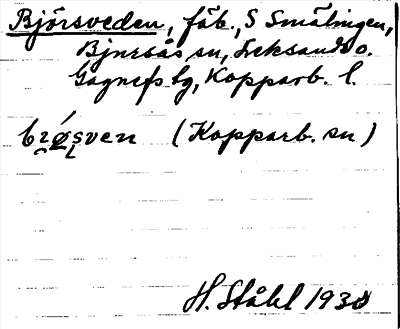 Björsveden, fäb., S Smålingen,
Bjursås sn, Leksands o.
Gagnefs tg, Kopparb. l.
(Kopparb. sn)
H. Ståhl 1930